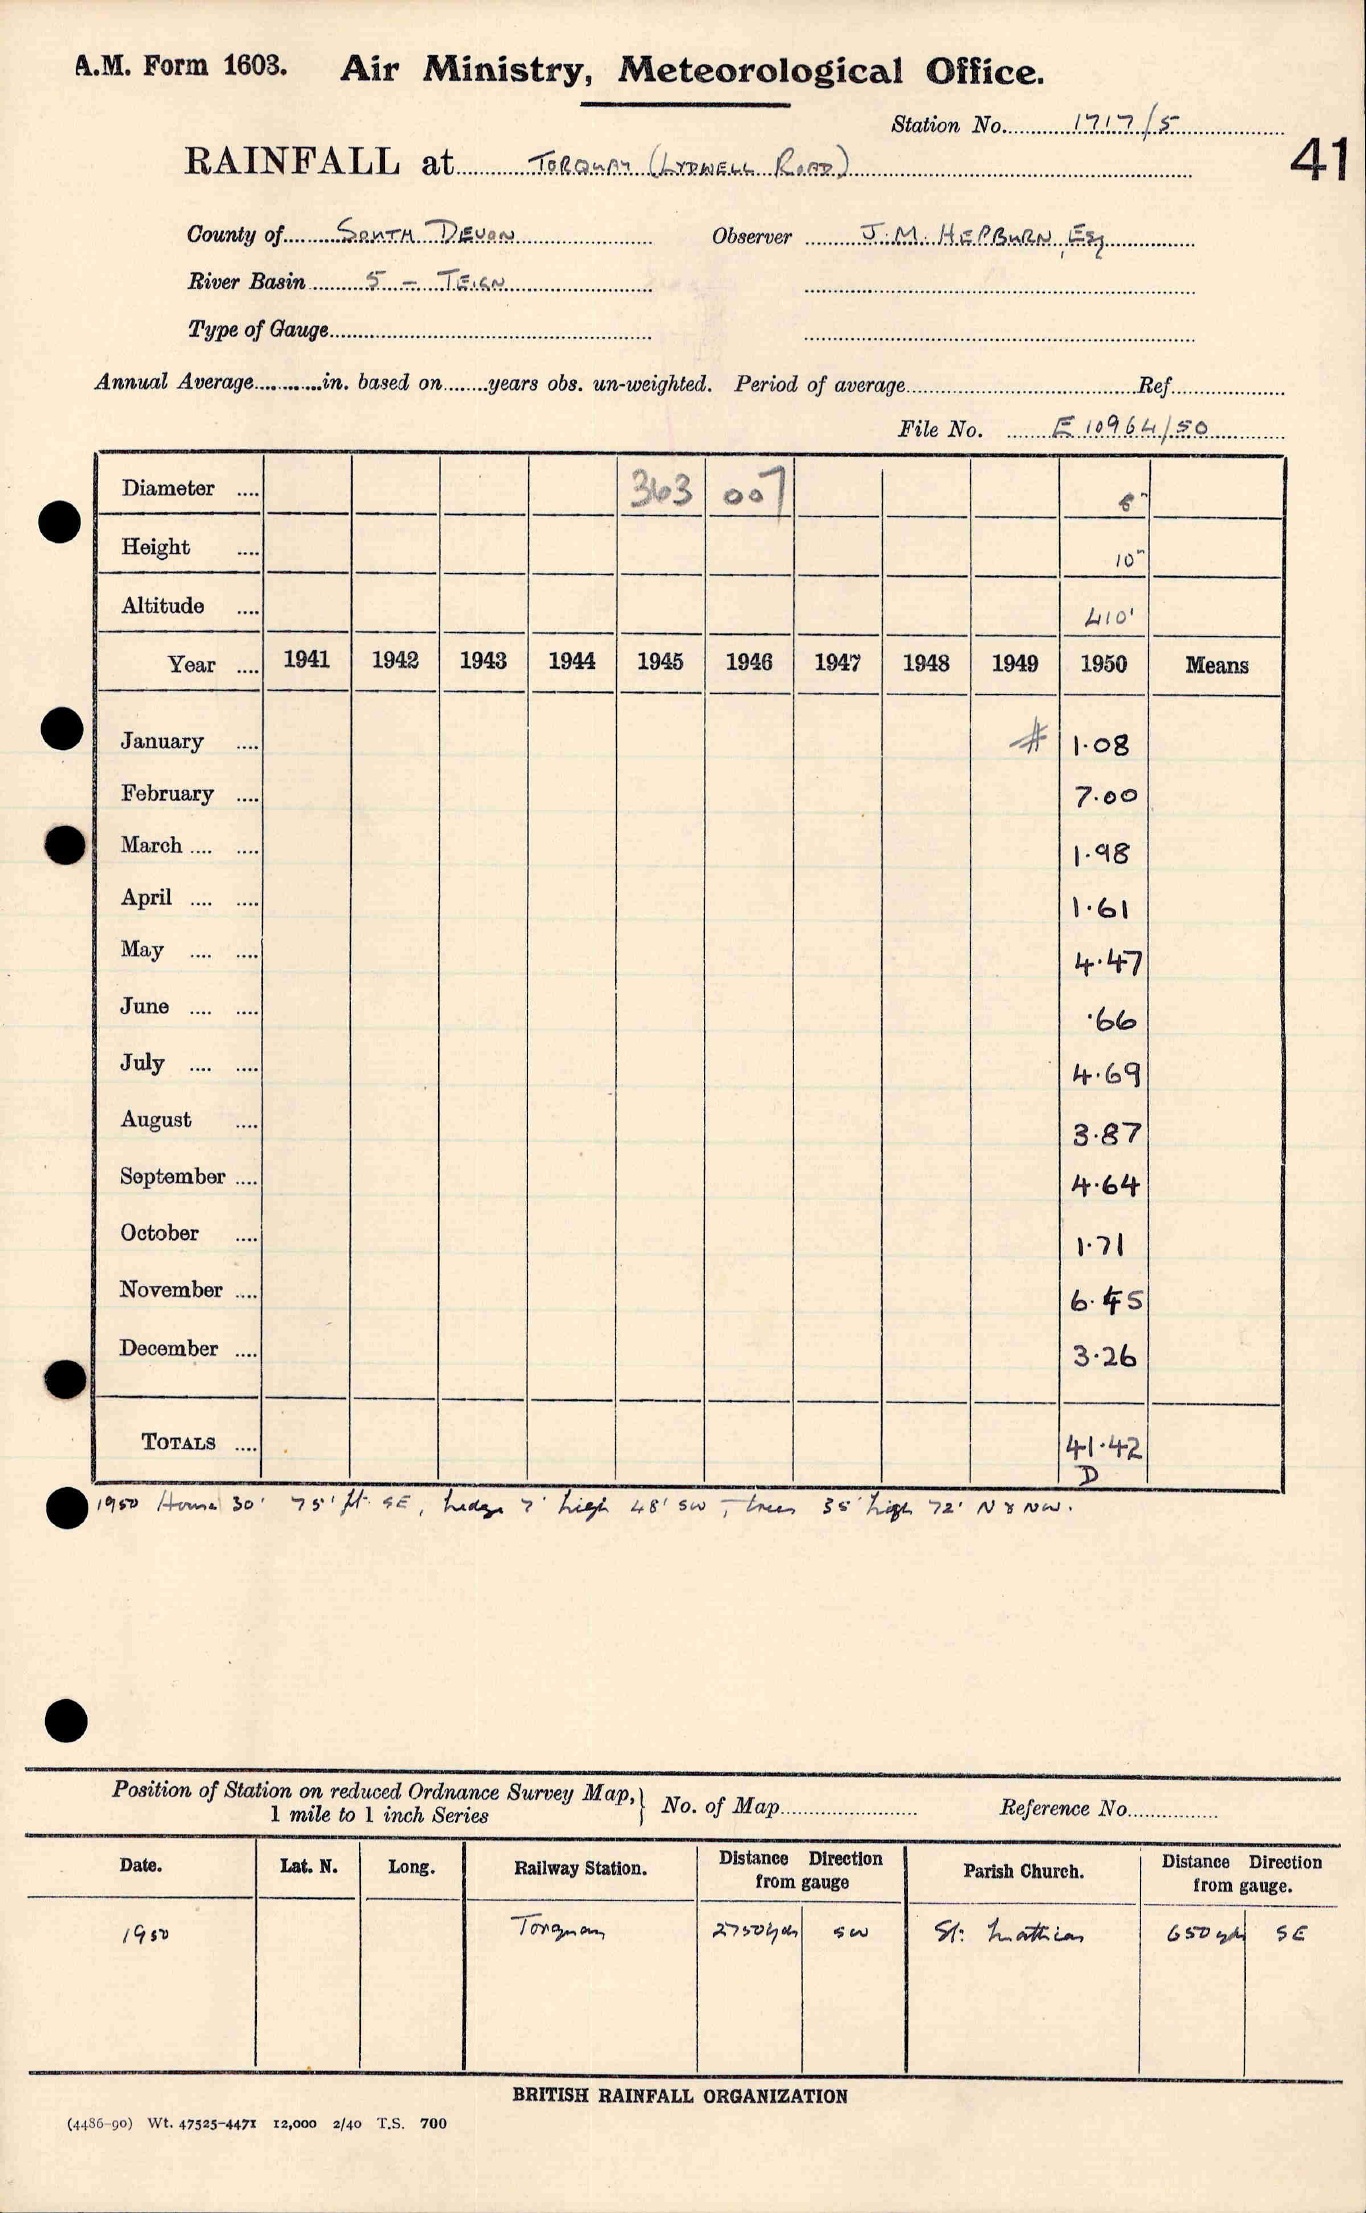 A.M. Form 1603. Air Ministry, Meteorological Office.
Station No. 1717/5
41
RAINFALL at TORQUAY (LYDWELL ROAD)
County of SOUTH DEVON Observer J.M. HEPBURN, Esq
River Basin 5 - TEIGN
Type of Gauge
Annual Average in. based on years obs. un-weighted. Period of average Ref.
File No. E 10964/50
Diameter 363 007
Height 10"
Altitude 410'
Year 1941 1942 1943 1944 1945 1946 1947 1948 1949 1950 Means
January # 1.08
February 7.00
March 1.98
April 1.61
May 4.47
June .66
July 4.69
August 3.87
September 4.64
October 1.71
November 6.45
December 3.26
TOTALS 41.42
D
1950 House 30' 75' ft. SE, hedge 7' high 48' SW, trees 35' high 72' N & NW.
Position of Station on reduced Ordnance Survey Map, } No. of Map Reference No.
1 mile to 1 inch Series
Date. Lat. N. Long. Railway Station. Distance Direction from gauge Parish Church. Distance Direction from gauge.
1950 Torquay 2750 yds SW St. Matthias 650 yds SE
BRITISH RAINFALL ORGANIZATION
(4486-90) Wt. 47525-4471 12,000 2/40 T.S. 700